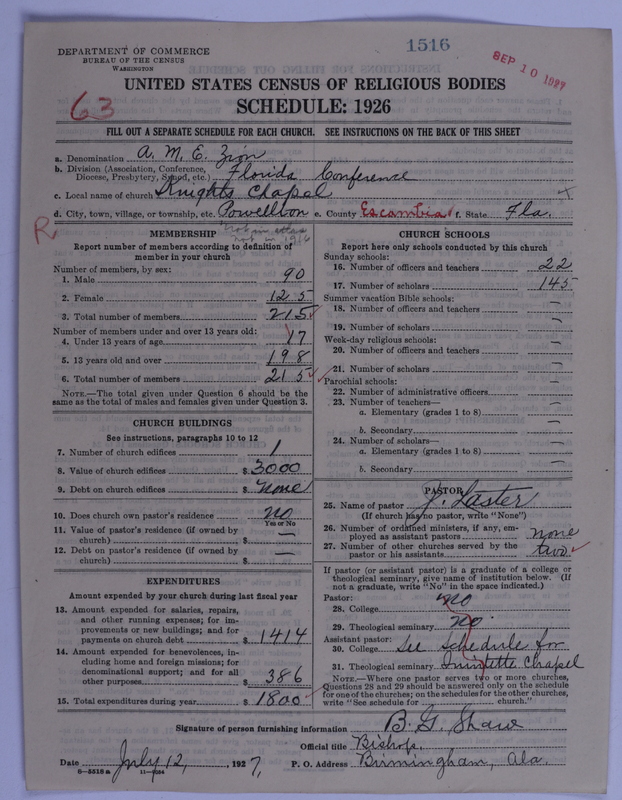 1516
SEP 10 1927
DEPARTMENT OF COMMERCE
BUREAU OF THE CENSUS
WASHINGTON
63
UNITED STATES CENSUS OF RELIGIOUS BODIES
SCHEDULE: 1926
FILL OUT A SEPARATE SCHEDULE FOR EACH CHURCH. SEE INSTRUCTIONS ON THE BACK OF THIS SHEET
a. Denomination A. M. E. Zion
b. Division (Association, Conference, Diocese, Presbytery, Synod, etc.) Florida Conference
c. Local name of church Knights Chapel
d. City, town, village, or township, etc. Powellton e. County Escambia f. State Fla.
R.
not in 1916
MEMBERSHIP
Report number of members according to definition of member in your church
Number of members, by sex:
1. Male 90
2. Female 125
3. Total number of members 215
Number of members under and over 13 years old:
4. Under 13 years of age 17
5. 13 years old and over 198
6. Total number of members 215
NOTE.—The total given under Question 6 should be the same as the total of males and females given under Question 3.
CHURCH BUILDINGS
See instructions, paragraphs 10 to 12
7. Number of church edifices 1
8. Value of church edifices $ 3000
9. Debt on church edifices $ none
10. Does church own pastor's residence no
Yes or No
11. Value of pastor's residence (if owned by church) $ —
12. Debt on pastor's residence (if owned by church) $ —
EXPENDITURES
Amount expended by your church during last fiscal year
13. Amount expended for salaries, repairs, and other running expenses; for improvements or new buildings; and for payments on church debt $ 1414
14. Amount expended for benevolences, including home and foreign missions; for denominational support; and for all other purposes $ 386
15. Total expenditures during year $ 1800
CHURCH SCHOOLS
Report here only schools conducted by this church
Sunday schools:
16. Number of officers and teachers 22
17. Number of scholars 145
Summer vacation Bible schools:
18. Number of officers and teachers —
19. Number of scholars —
Week-day religious schools:
20. Number of officers and teachers —
21. Number of scholars —
Parochial schools:
22. Number of administrative officers —
23. Number of teachers—
a. Elementary (grades 1 to 8) —
b. Secondary —
24. Number of scholars—
a. Elementary (grades 1 to 8) —
b. Secondary —
PASTOR
25. Name of pastor J. Laster
(If church has no pastor, write "None")
26. Number of ordained ministers, if any, employed as assistant pastors none
27. Number of other churches served by the pastor or his assistants two
If pastor (or assistant pastor) is a graduate of a college or theological seminary, give name of institution below. (If not a graduate, write "No" in the space indicated.)
Pastor:
28. College no
29. Theological seminary no
Assistant pastor:
30. College See Schedule for
31. Theological seminary Chapel
NOTE.—Where one pastor serves two or more churches, Questions 28 and 29 should be answered only on the schedule for one of the churches; on the schedules for the other churches, write "See schedule for church."
Signature of person furnishing information B. G. Shaw
Official title Bishop
Date July 12, 1927, P. O. Address Birmingham, Ala.
8-5518a 11-9284